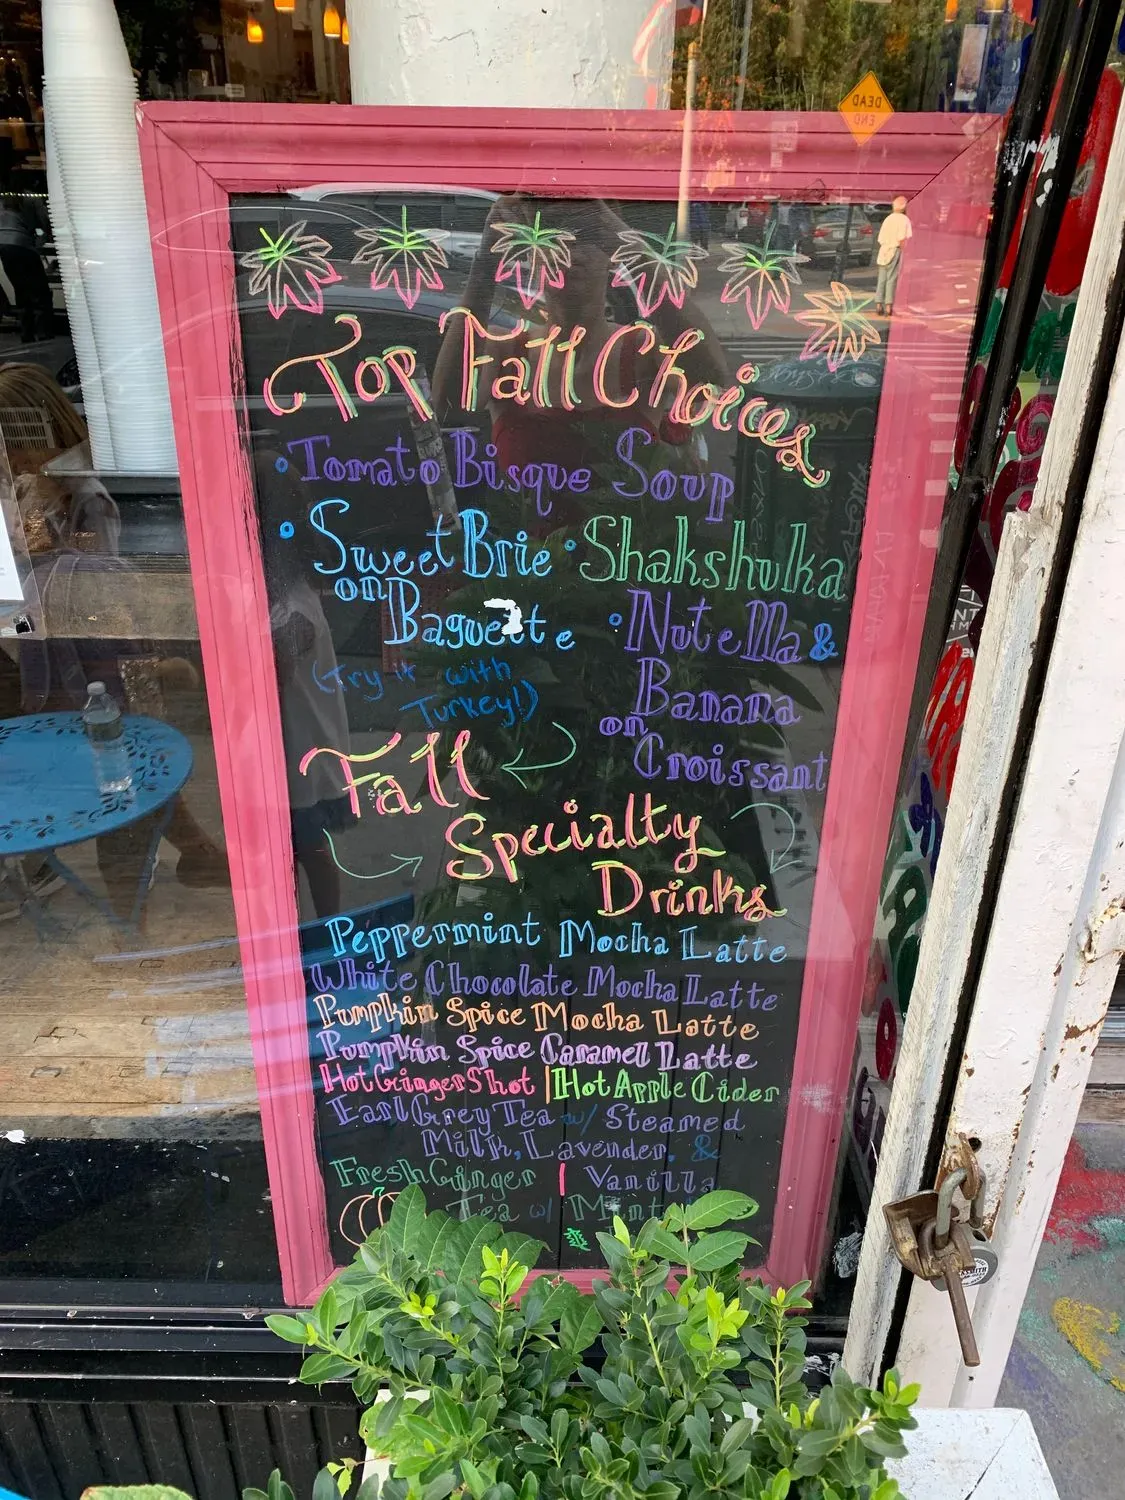 DEAD
END
Top Fall Choices
• Tomato Bisque Soup
• Sweet Brie
on
Baguette
(Try it with
Turkey!)
• Shakshulka
• Nutella &
Banana
on
Croissant
Fall
Specialty
Drinks
Peppermint Mocha Latte
White Chocolate Mocha Latte
Pumpkin Spice Mocha Latte
Pumpkin Spice Caramel Latte
Hot Ginger Shot | Hot Apple Cider
Earl Grey Tea w/ Steamed
Milk, Lavender, &
Vanilla
Fresh Ginger |
Tea w/ Mint